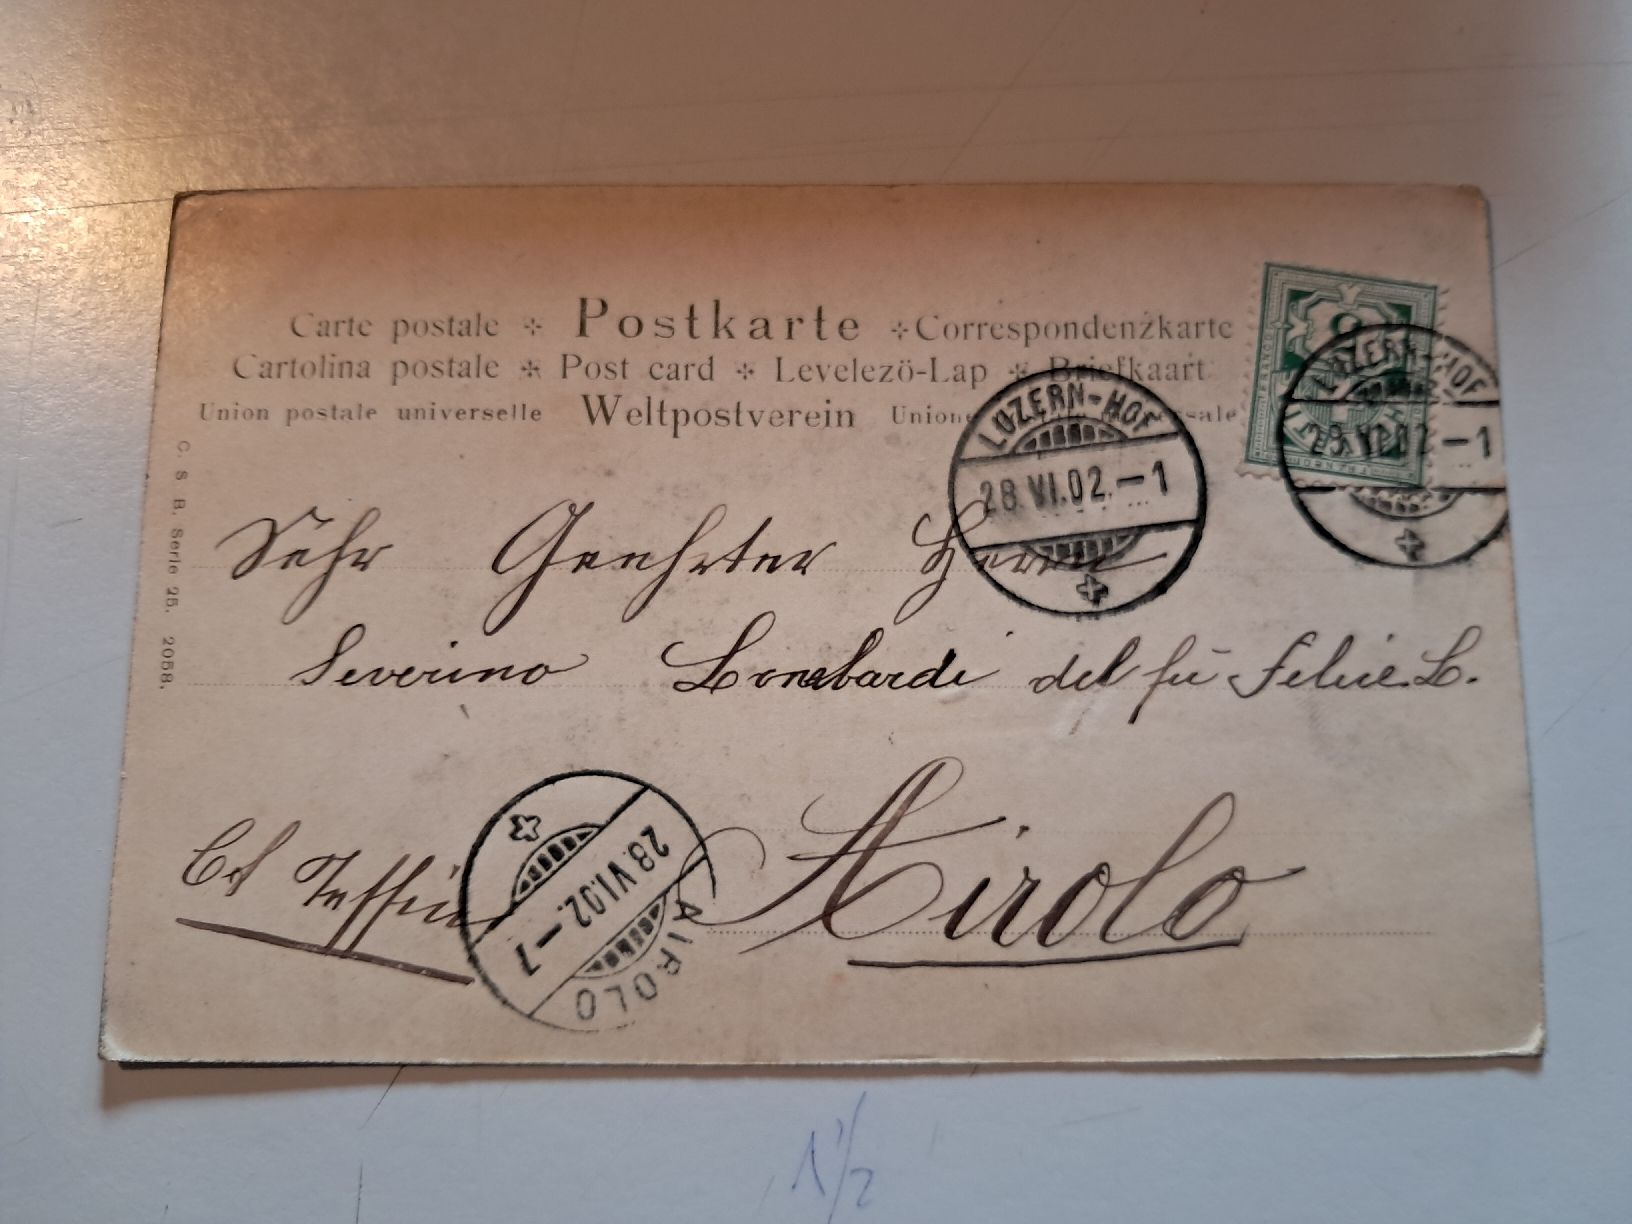 Carte postale ✣ Postkarte ✣ Correspondenzkarte
Cartolina postale ✣ Post card ✣ Levelezö-Lap ✣ Briefkaart
Union postale universelle Weltpostverein
C S B. Serie 25. 2058.
LUZERN-HOF
28.VI.02.–1
LUZERN-HOF
–1
Sehr Geehrter Herrn
Severino Lombardi del fu Felice L.
Airolo
Ct Tessin
AIROLO
28.VI.02.–7
1/2